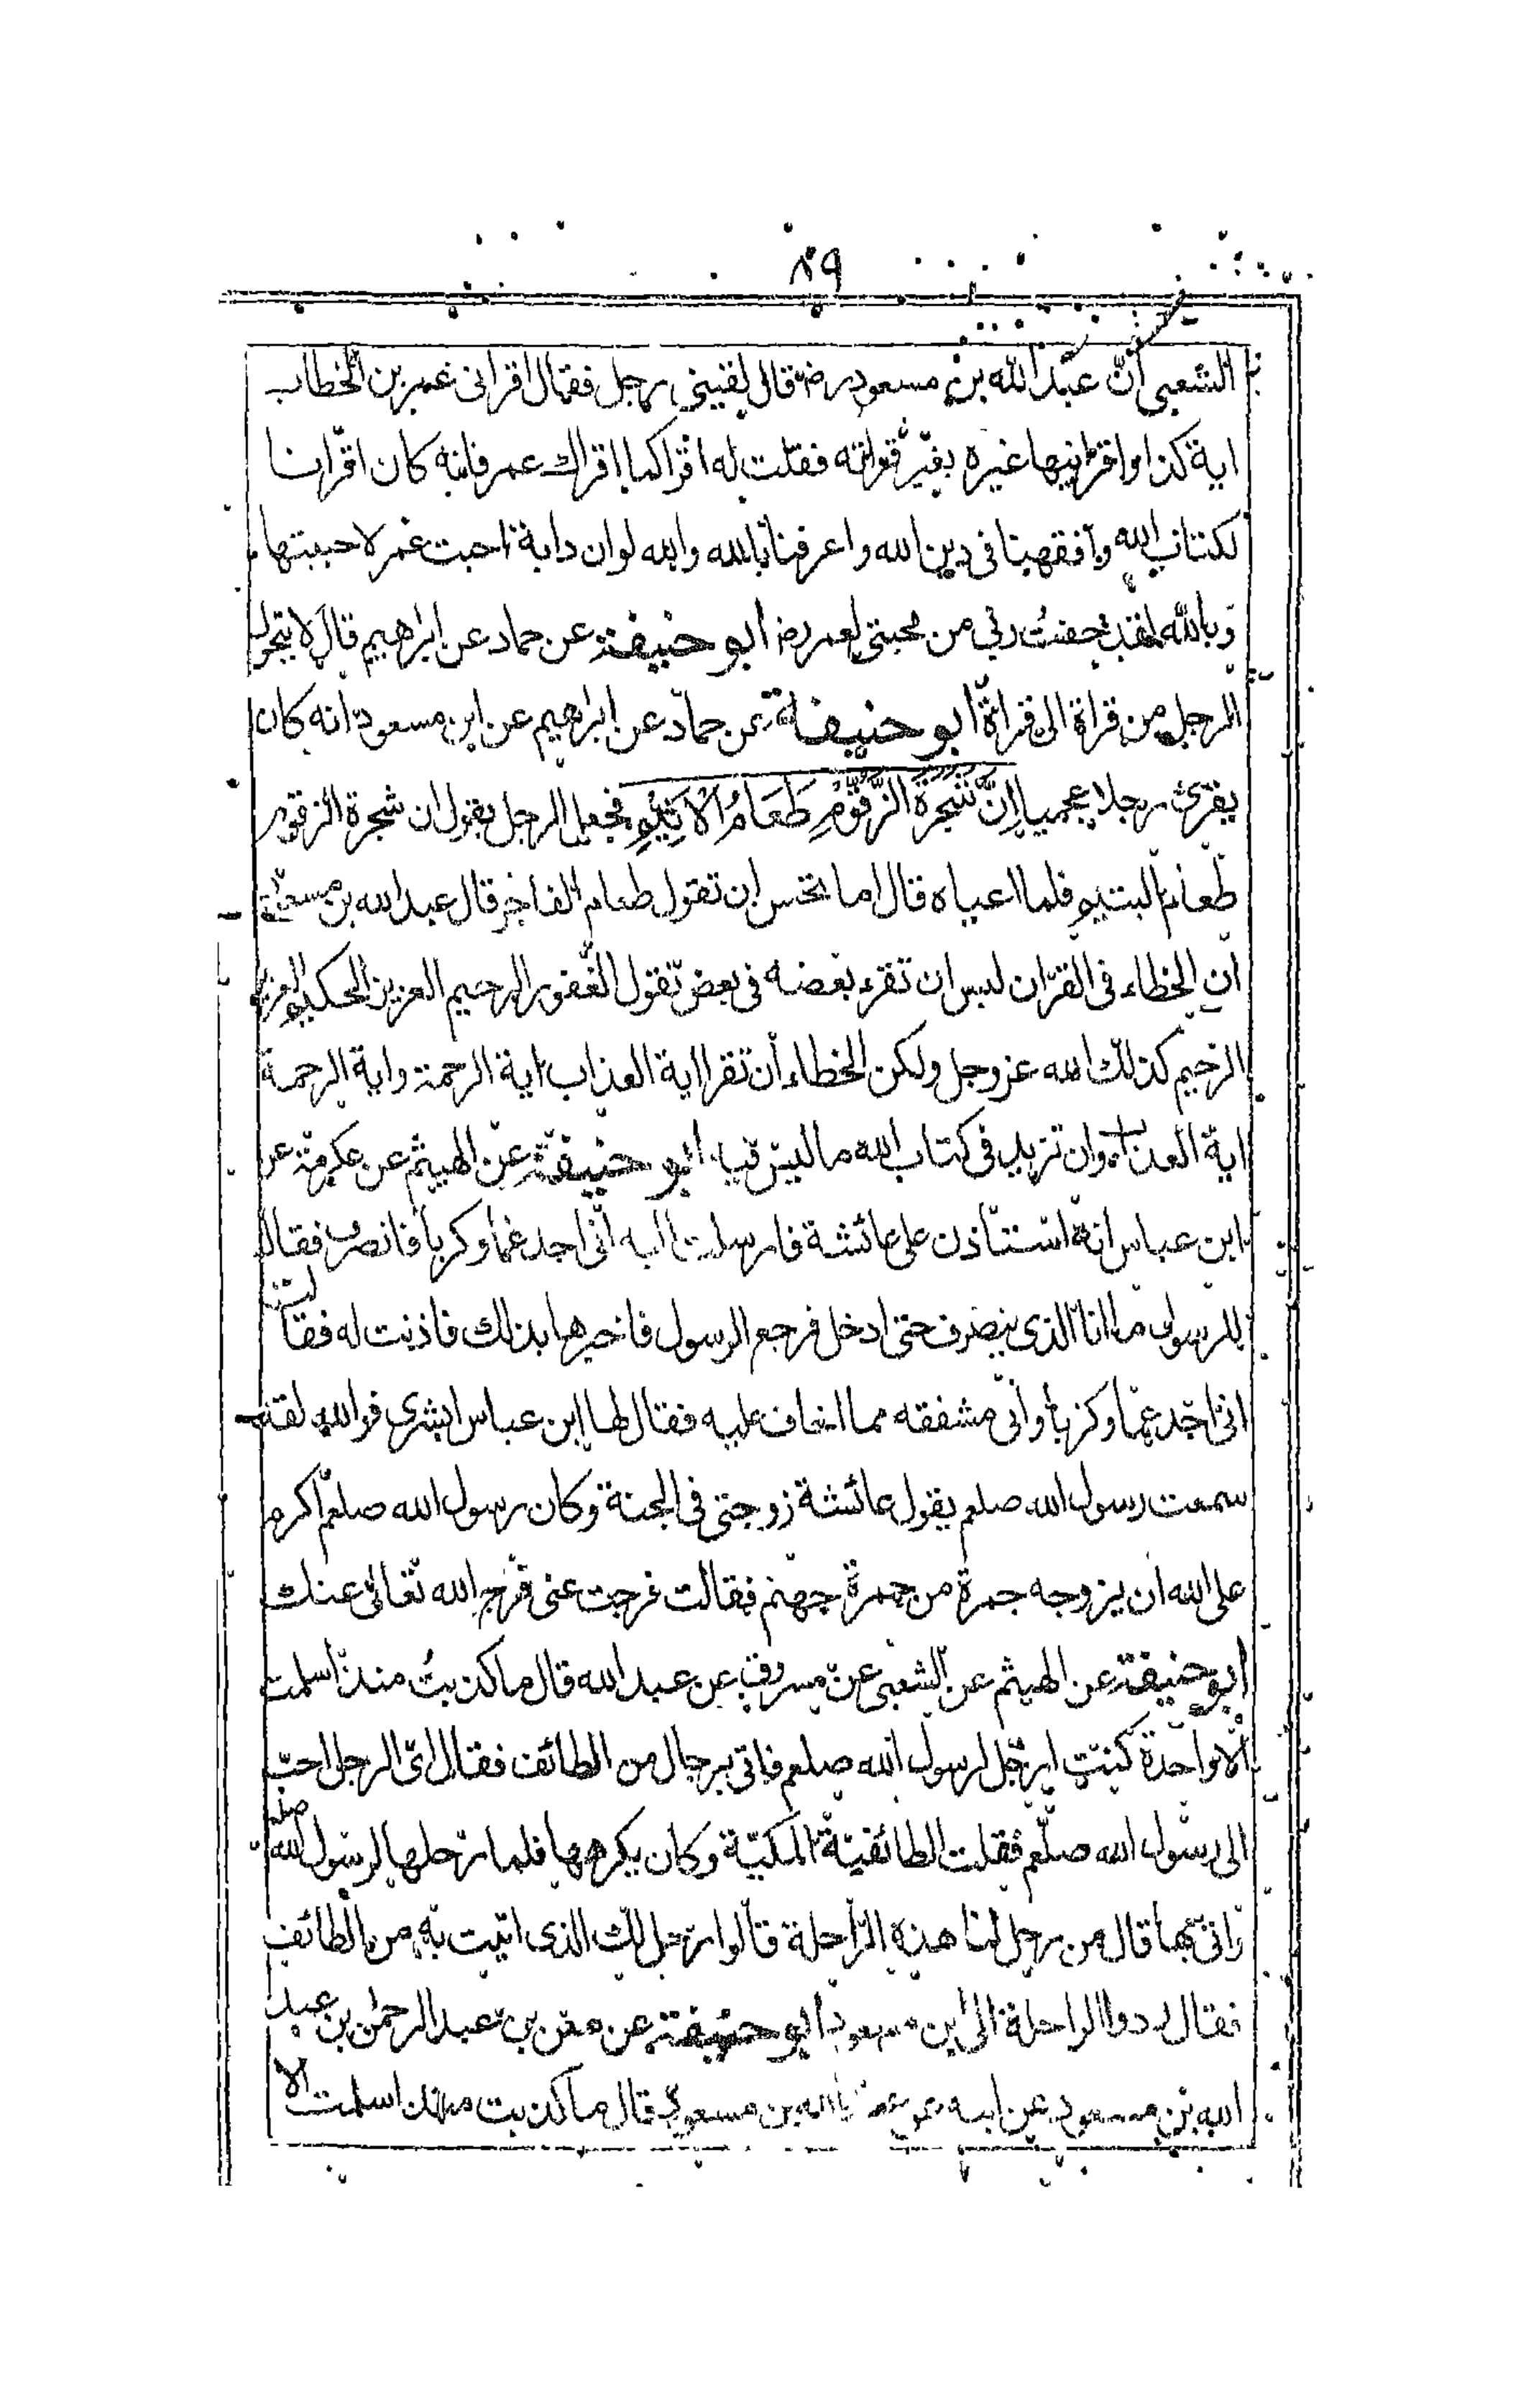 ٨٩
الشعبى ان عبد الله بن مسعود رضه قال لقينى رجل فقال اقرانى عمر بن الخطاب
اية كذا واقرانيها غيره بغير قراته فقلت له اقرا كما اقراك عمر فانه كان اقرانا
لكتاب الله وافقهنا فى دين الله واعرفنا بالله والله لو ان دابة احبت عمر لاحببتها
وبالله لقد خفت ربى من محبتى لعمر رضه ابو حنيفة عن حماد عن ابراهيم قال لا يتحول
الرجل من قراة الى قراة ابو حنيفة عن حماد عن ابراهيم عن ابن مسعود انه كان
يقرئ رجلا عجميا اِنَّ شَجَرَةَ الزَّقُّوْمِ طَعَامُ الْاَثِيْمِ فجعل الرجل يقول ان شجرة الزقوم
طعام اليتيم فلما اعياه قال اما تحسن ان تقول طعام الفاجر قال عبد الله بن مسعود
ان الخطاء فى القران ليس ان تقرء بعضه فى بعض تقول الغفور الرحيم العزيز الحكيم العزيز
الرحيم كذلك الله عز وجل ولكن الخطاء ان تقرا اية العذاب اية الرحمة واية الرحمة
اية العذاب وان تزيد فى كتاب الله ما ليس فيه ابو حنيفة عن الهيثم عن عكرمة عن
ابن عباس انه استاذن على عائشة فارسلت اليه انى اجد غما وكربا فانصرف فقال
للرسول ما انا الذى ينصرف حتى ادخل فرجع الرسول فاخبرها بذلك فاذنت له فقالت
انى اجد غما وكربا وانى مشفقه مما اخاف عليه فقال لها ابن عباس ابشرى فوالله لقد
سمعت رسول الله صلعم يقول عائشة زوجتى فى الجنة وكان رسول الله صلعم اكرم
على الله ان يزوجه جمرة من جمرة جهنم فقالت فرجت عنى فرج الله تعالى عنك
ابو حنيفة عن الهيثم عن الشعبى عن مسروق عن عبد الله قال ما كذبت منذ اسلمت
الا واحدة كنت ارحل لرسول الله صلعم فاتى برحال من الطائف فقال اى الرحل احب
الى رسول الله صلعم فقلت الطائفية المكية وكان يكرهها فلما رحلها لرسول الله صلعم
اتى بها قال من رحل لنا هذه الراحلة قالوا رحل لك الذى اتيت به من الطائف
فقال ردوا الراحلة الى ابن مسعود ابو حنيفة عن معن بن عبد الرحمن بن عبد
الله بن مسعود عن ابيه عن عبد الله بن مسعود قال ما كذبت منذ اسلمت الا